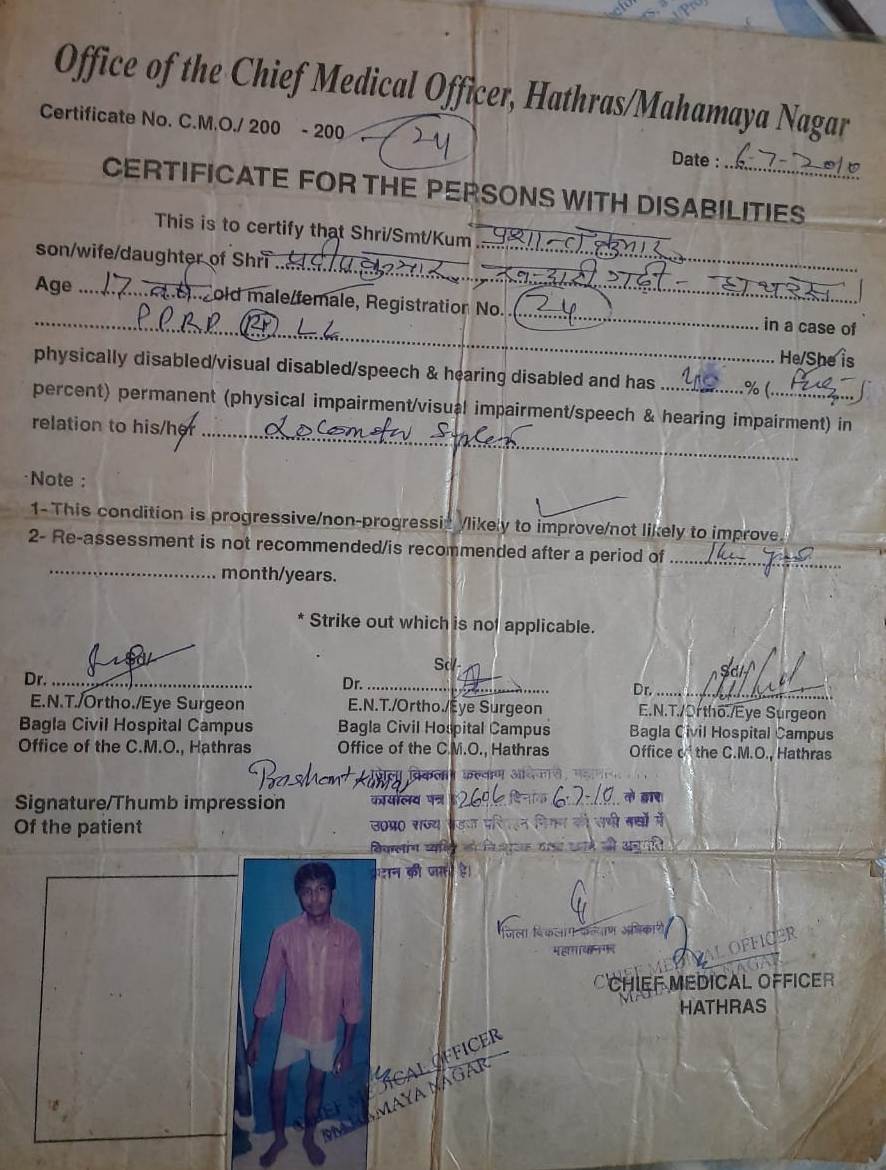 Office of the Chief Medical Officer, Hathras/Mahamaya Nagar
Certificate No. C.M.O./ 200 - 200 24
Date : 6-7-2010
CERTIFICATE FOR THE PERSONS WITH DISABILITIES
This is to certify that Shri/Smt/Kum प्रशान्त कुमार
son/wife/daughter of Shri प्रदीप कुमार हाथरस
Age 17 वर्ष old male/female, Registration No. 24 in a case of
P P R P Rt L L He/She is
physically disabled/visual disabled/speech & hearing disabled and has 40 % (
percent) permanent (physical impairment/visual impairment/speech & hearing impairment) in
relation to his/her Locomotor System
Note :
1- This condition is progressive/non-progressive/likely to improve/not likely to improve.
2- Re-assessment is not recommended/is recommended after a period of
month/years.
* Strike out which is not applicable.
Sd/- Sd/- Sd/-
Dr. Dr. Dr.
E.N.T./Ortho./Eye Surgeon E.N.T./Ortho./Eye Surgeon E.N.T./Ortho./Eye Surgeon
Bagla Civil Hospital Campus Bagla Civil Hospital Campus Bagla Civil Hospital Campus
Office of the C.M.O., Hathras Office of the C.M.O., Hathras Office of the C.M.O., Hathras
Prashant Kumar जिला विकलांग कल्याण अधिकारी,
Signature/Thumb impression कार्यालय पत्र 2696 दिनांक 6-7-10 के द्वारा
Of the patient उ०प्र० राज्य सड़क परिवहन निगम की सभी बसों में
विकलांग व्यक्ति को निःशुल्क यात्रा करने की अनुमति
प्रदान की जाती है।
जिला विकलांग कल्याण अधिकारी
महामायानगर
CHIEF MEDICAL OFFICER
MAHAMAYA NAGAR
CHIEF MEDICAL OFFICER
HATHRAS
CHIEF MEDICAL OFFICER
MAHAMAYA NAGAR